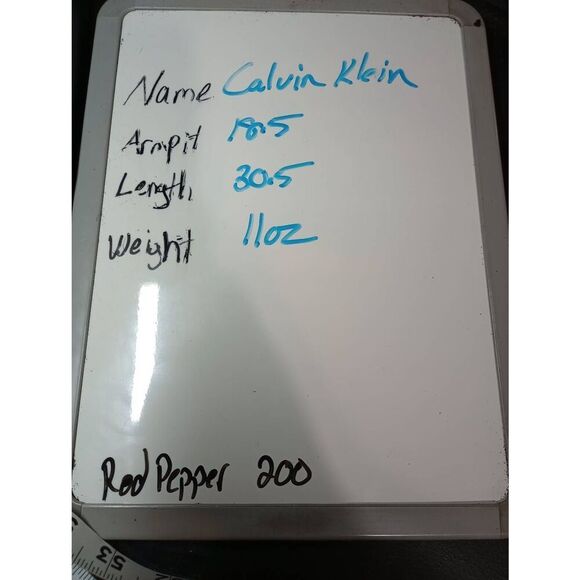 Name Calvin Klein
Armpit 18.5
Length 30.5
Weight 11oz
Red Pepper 200
53